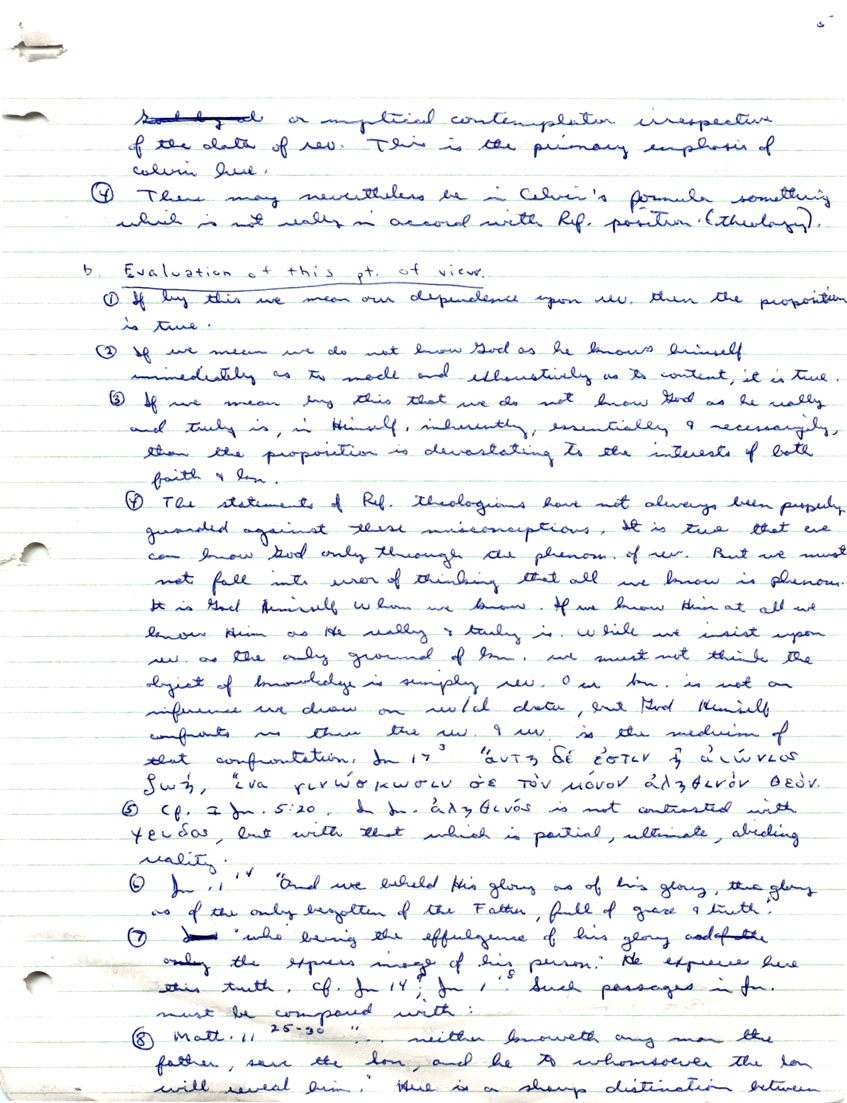 or mystical contemplation irrespective
of the data of rev. This is the primary emphasis of
Calvin here.
④ There may nevertheless be in Calvin's formula something
which is not really in accord with Ref. position. (theology).
b. Evaluation of this pt. of view.
① If by this we mean our dependence upon rev. then the proposition
is true.
② If we mean we do not know God as he knows himself
immediately as to mode and exhaustively as to content, it is true.
③ If we mean by this that we do not know God as he really
and truly is, in Himself, inherently, essentially & necessarily,
then the proposition is devastating to the interests of both
faith & kn.
④ The statements of Ref. theologians have not always been properly
guarded against these misconceptions. It is true that we
can know God only through the phenom. of rev. But we must
not fall into error of thinking that all we know is phenom.
It is God Himself Whom we know. If we know Him at all we
know Him as He really & truly is. While we insist upon
rev. as the only ground of kn. we must not think the
object of knowledge is simply rev. Our kn. is not an
inference we draw on rev'd data, but God Himself
confronts us thru the rev. & rev. is the medium of
that confrontation. Jn 17³ "αυτη δέ ἐστιν ἡ αἰώνιος
ζωή, ἵνα γινώσκωσιν σε τὸν μόνον ἀληθινόν θεόν.
⑤ Cf. I Jn. 5:20. In Jn. ἀληθινός is not contrasted with
ψευδος, but with that which is partial, ultimate, abiding
reality.
⑥ Jn 1:14 "And we beheld His glory as of his glory, the glory
as of the only begotten of the Father, full of grace & truth".
⑦ "who being the effulgence of his glory and of the
only the express image of his person." He express here
this truth. Cf. Jn 14⁹, Jn 1¹⁸ Such passages in Jn.
must be compared with:
⑧ Matt. 11 25-30 "... neither knoweth any man the
father, save the son, and he to whomsoever the son
will reveal him." Here is a sharp distinction between